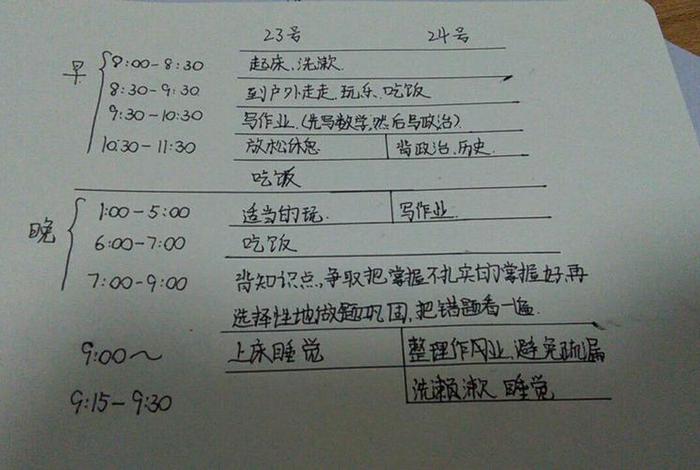 23号 24号
早 8:00-8:30 起床、洗漱
8:30-9:30 到户外走走、玩乐、吃饭
9:30-10:30 写作业、(先写数学,然后写政治)
10:30-11:30 放松休息 背政治、历史
吃饭
晚 1:00-5:00 适当的玩 写作业
6:00-7:00 吃饭
7:00-9:00 背知识点,争取把掌握不扎实的掌握好,再
选择性地做题巩固,把错题看一遍
9:00~ 上床睡觉 整理作业,避免疏漏
9:15-9:30 洗漱 睡觉